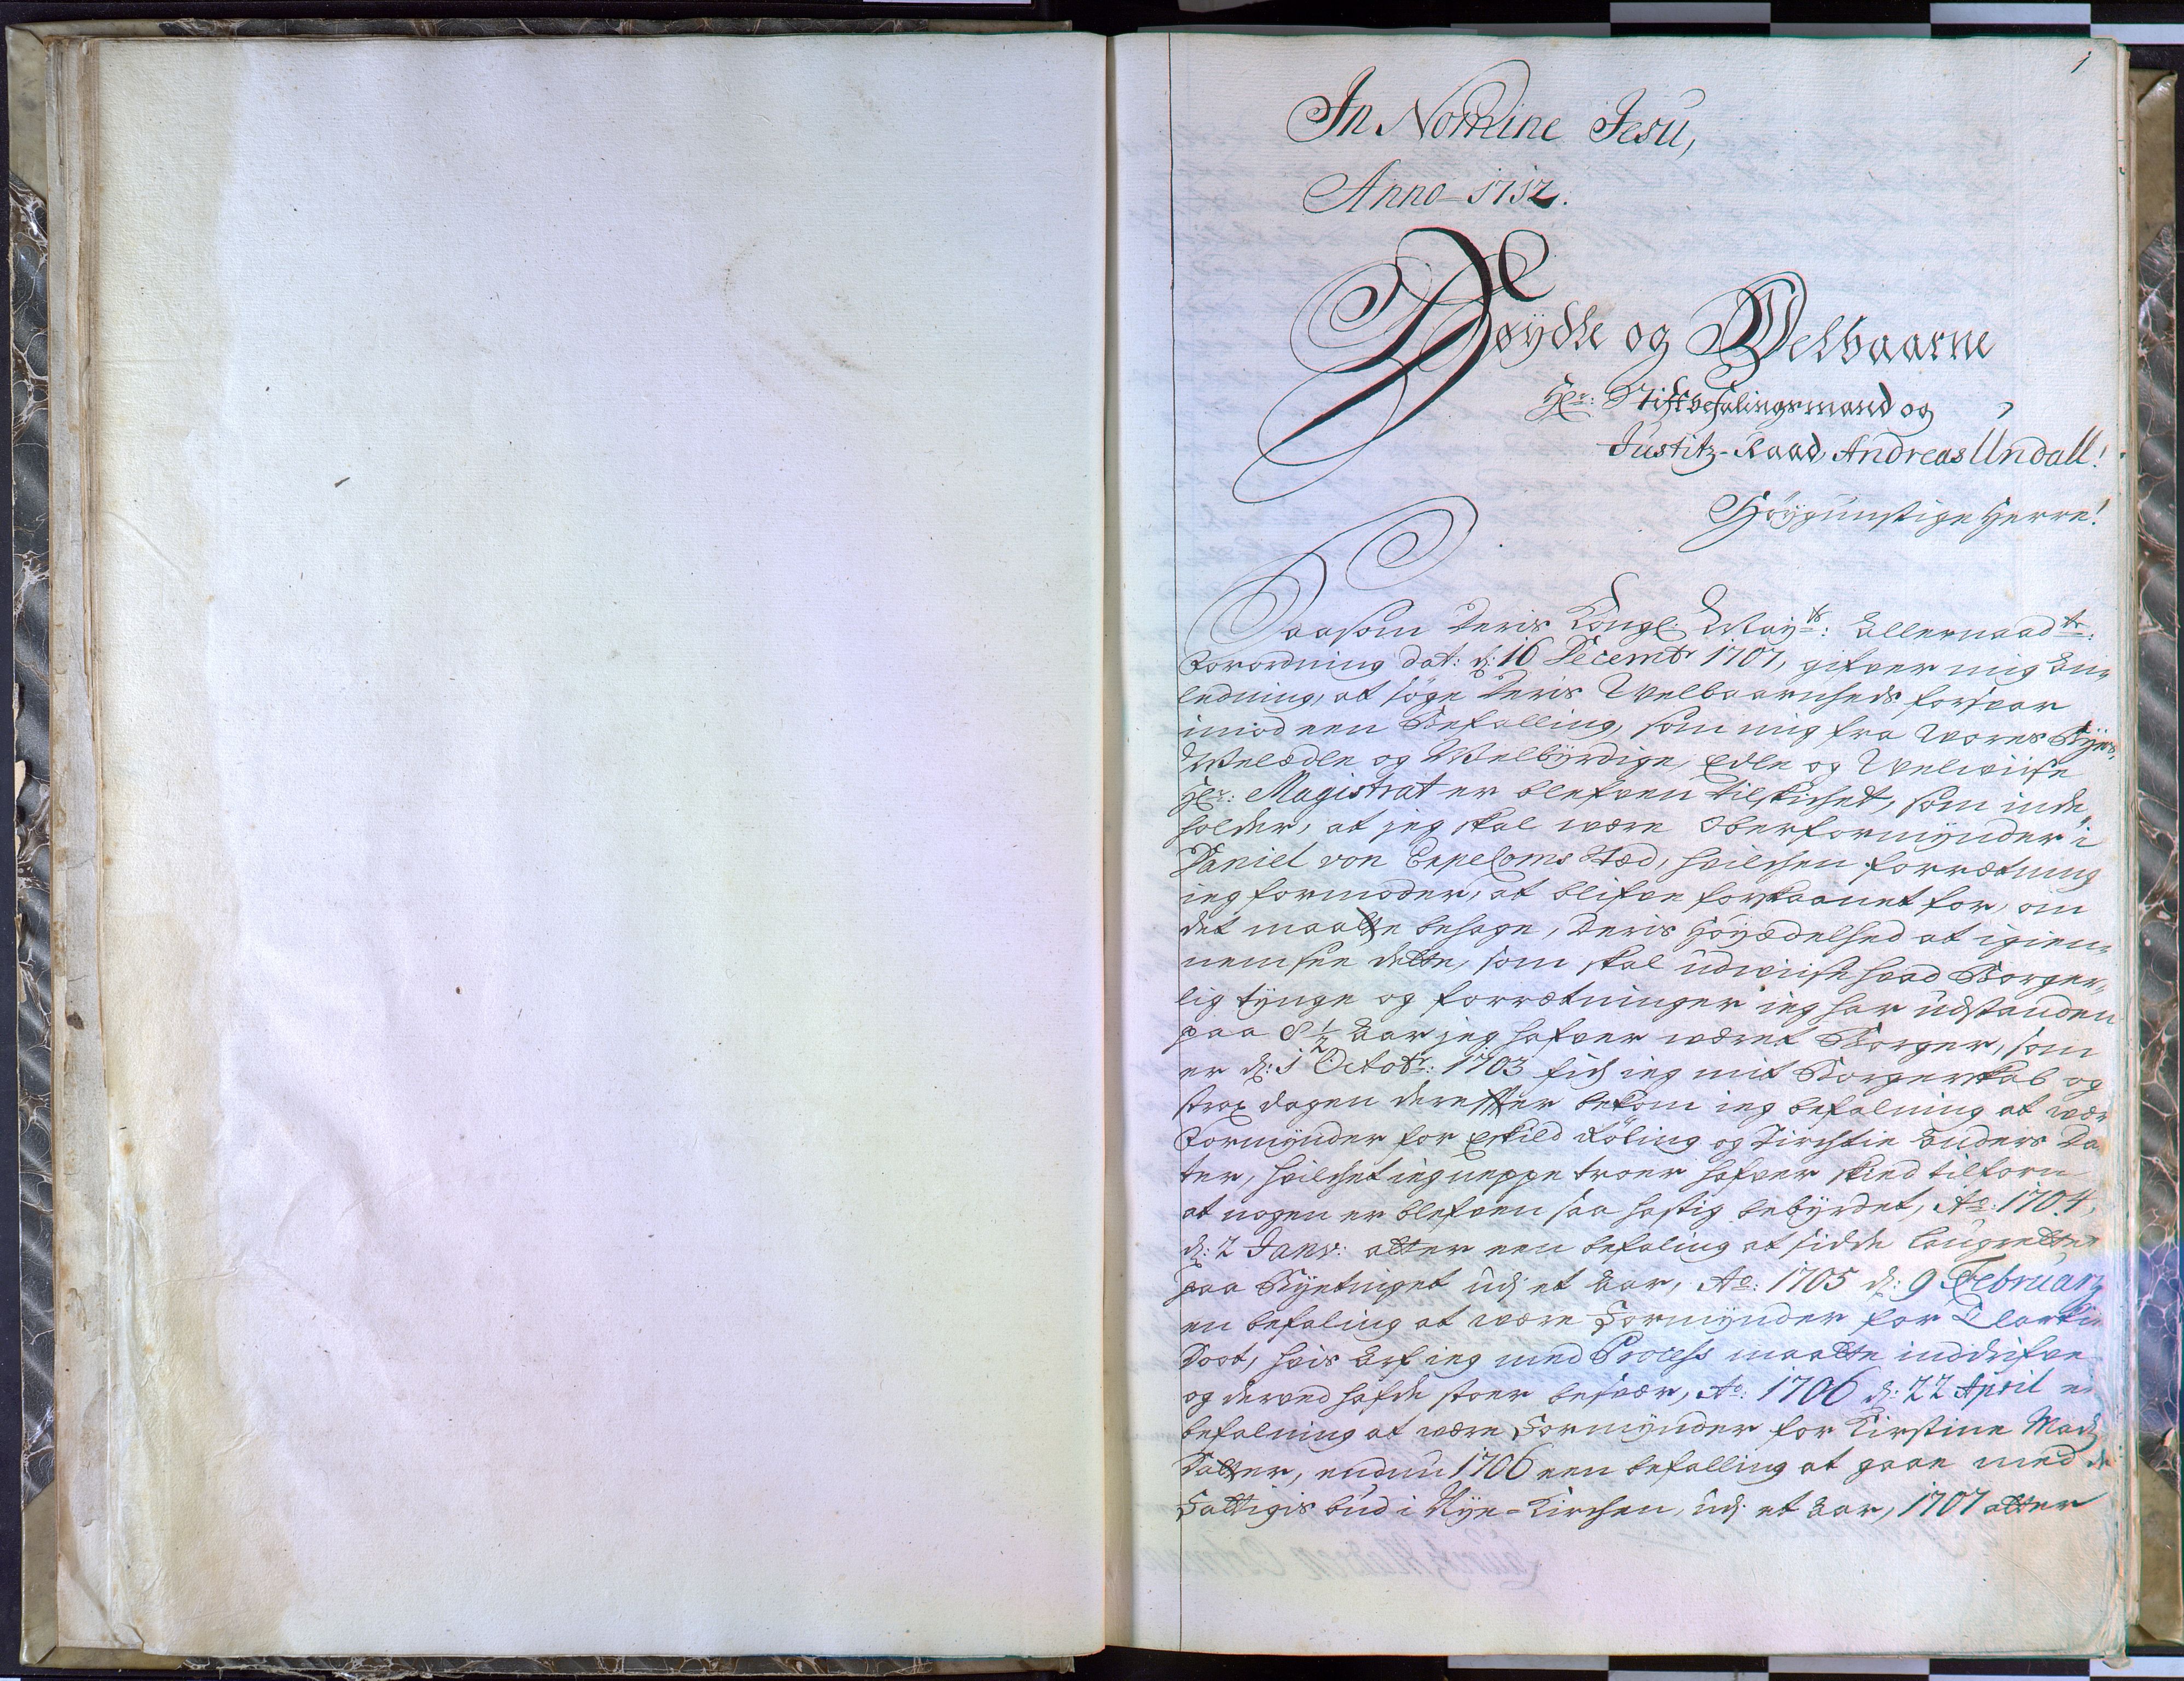 1
In Nomine Jesu,
Anno 1712.
Høyædle og Velbaarne
Hr: Stiftbefalingsmand og
Justitz-Raad, Andreas Undall!
Høygunstige Herre!
Saasom Deris Kongl: Mayts: Allernaadte:
Forordning dat: d: 16 Decembr 1707, gifver mig An-
ledning, at søge Deris Welbaarenheds forsvar
imod een Befalling, som mig fra Wores Byes
Welædle og Welbyrdige, Edle og Welviise
Hr: Magistrat er blefven tilskichet, som inde
holder, at jeg skal være Oberformynder i
Daniel von Stæd, hvilchen forrætning
ieg formoder, at blifve forskaanet for, om
det maatte behage, Deris Høyædelhed at igien-
nemsee dette, som skal udviise hvad Borger-
lig tynge og forrætninger ieg har udstanden
paa 8 1/2 Aar jeg hafver været Borger, som
er d: 1 Octobr: 1703 fich ieg mit Borgerskab og
strax dagen derefter bekom ieg befalning at vær
Formynder for Eskild Røling og Kirstie Anders Da
ter, hvilchet ieg neppe troer hafver skied tilforn
at nogen er blefven saa hastig bebyrdet, Ao: 1704,
d: 2 Janv: atter een befaling at sidde Laugretter
paa Byetinget udj et Aar, Ao: 1705 d: 9 February
en befaling at være Formynder for
Doot, hvis Arf ieg med Process maatte inddrifve
og derved hafde stoer besvær, Ao: 1706 d: 22 April e
befalning at være Formynder for Kirstine Mads
Datter, endnu 1706 een befalling at gaae med de
Fattigis bud i Nye-Kirchen, udj et Aar, 1707 atter